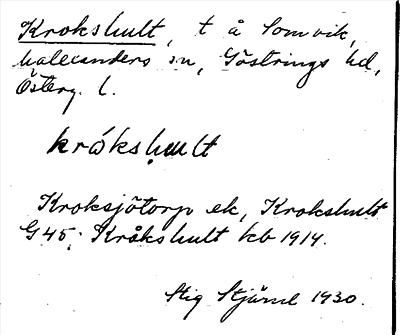 Krokshult, t å Somvik,
Malexanders sn, Göstrings hd,
Österg. l.
krókshult
Kroksjötorp ek, Krokshult
G45; Kråkshult kb 1914.
Stig Stjärne 1930.